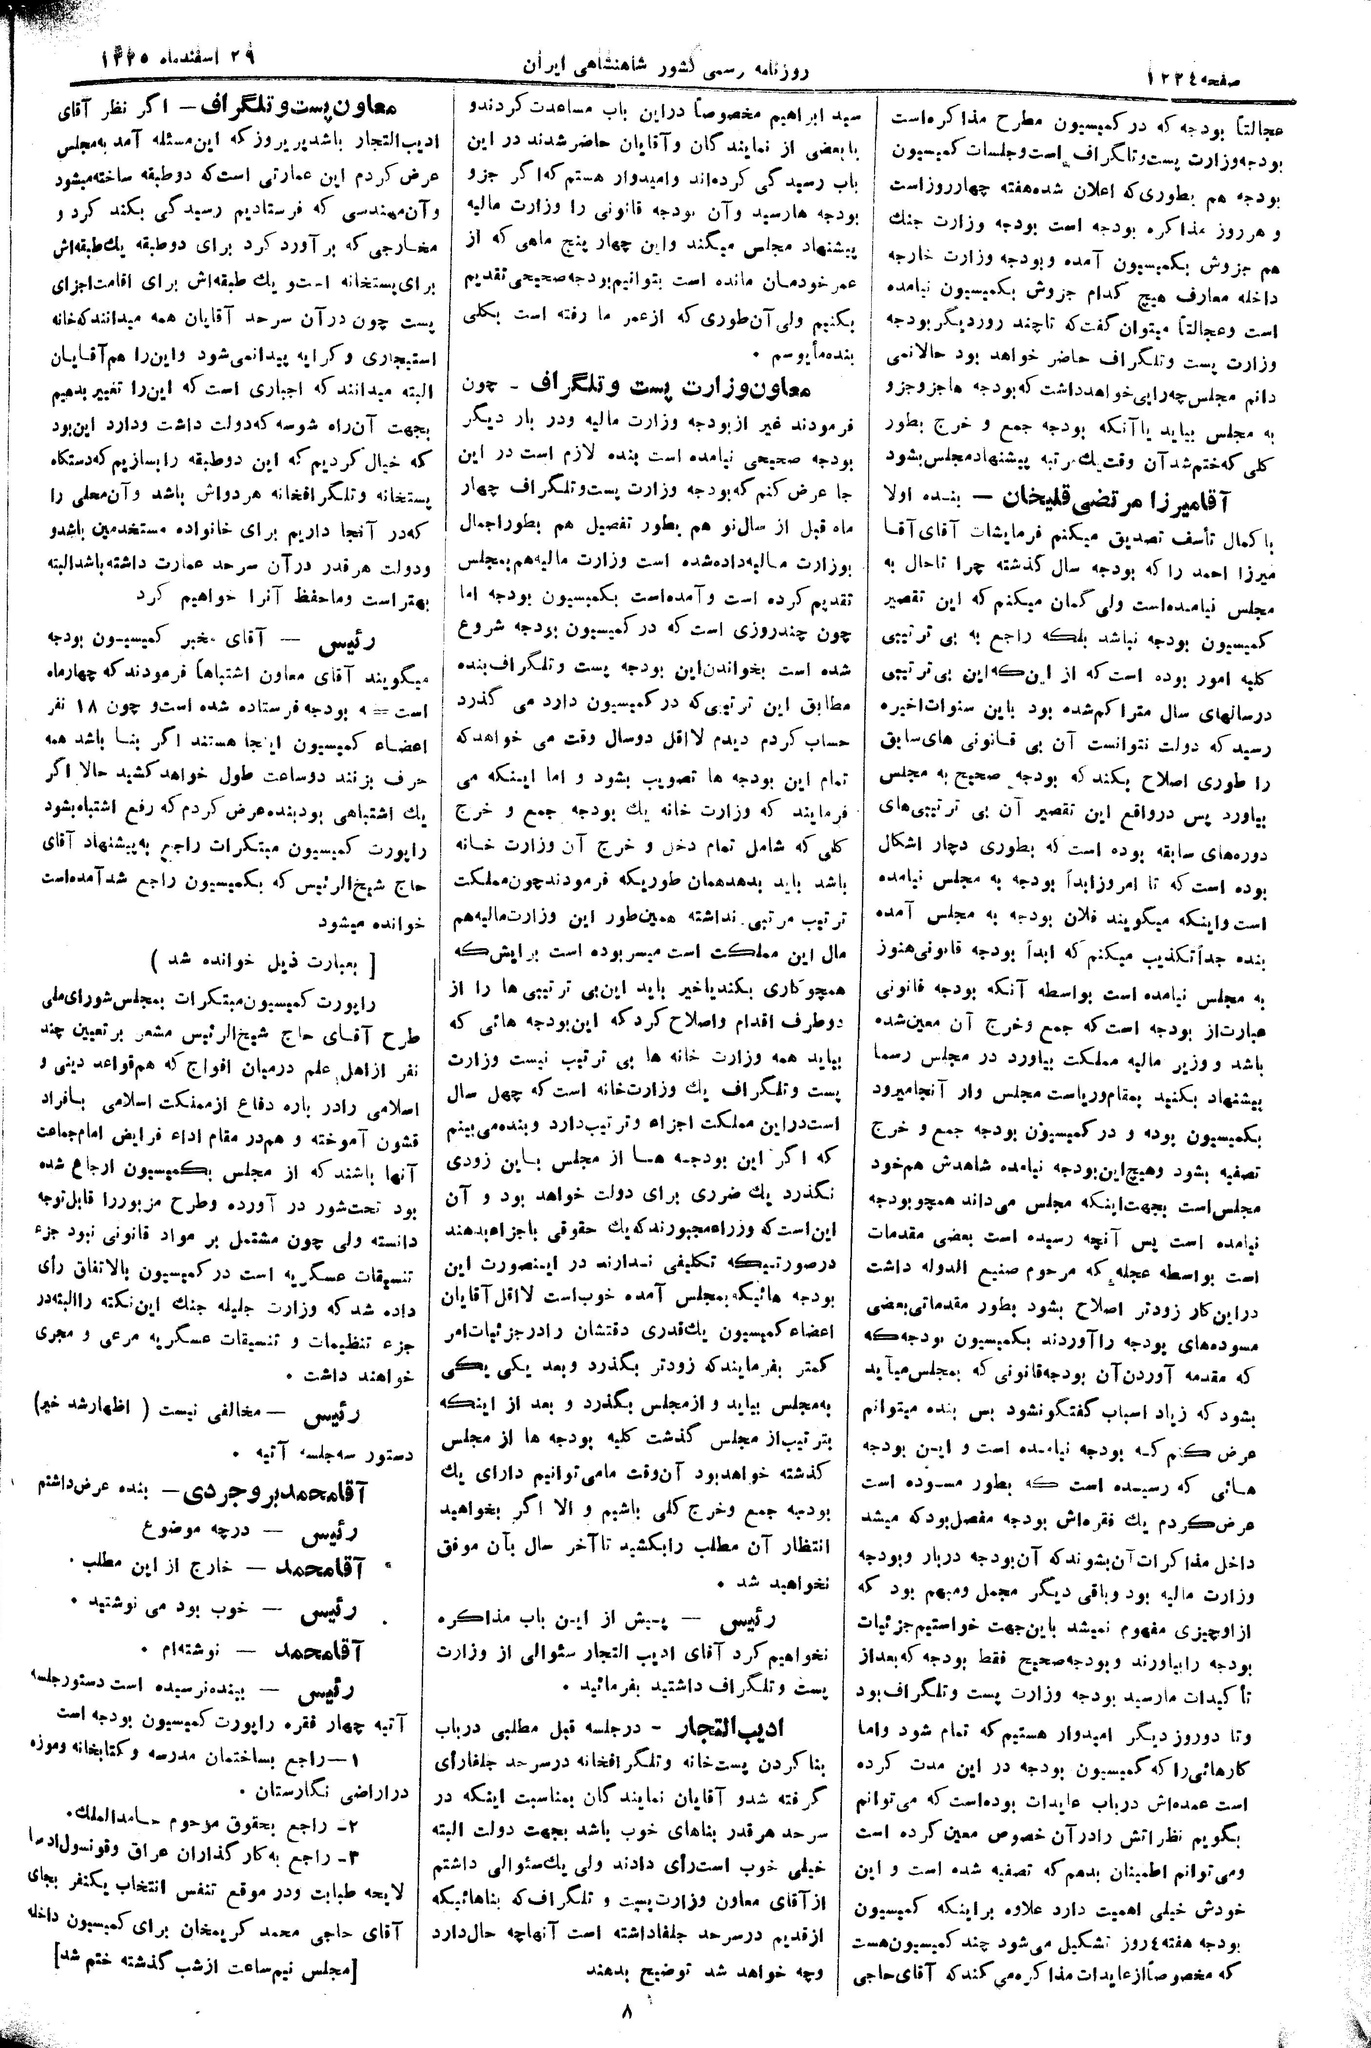 صفحه ۱۲۲۴
روزنامه رسمی کشور شاهنشاهی ایران
۲۹ اسفندماه ۱۳۲۵
عجالتاً بودجه که در کمیسیون مطرح مذاکره است
بودجه وزارت پست و تلگراف است و جلسات کمیسیون
بودجه هم بطوری که اعلان شده هفته چهار روز است
و هر روز مذاکره بودجه است بودجه وزارت جنك
هم جزوش بکمیسیون آمده و بودجه وزارت خارجه
داخله معارف هیچ کدام جزوش بکمیسیون نیامده
است و عجالتاً میتوان گفت که تا چند روز دیگر بودجه
وزارت پست و تلگراف حاضر خواهد بود حالا نمی
دانم مجلس چه رایی خواهد داشت که بودجه ها جزو جزو
به مجلس بیاید یا آنکه بودجه جمع و خرج بطور
کلی که ختم شد آن وقت یك مرتبه پیشنهاد مجلس بشود
آقامیرزا مرتضی قلیخان – بنده اولا
با کمال تأسف تصدیق میکنم فرمایشات آقای آقا
میرزا احمد را که بودجه سال گذشته چرا تا حال به
مجلس نیامده است ولی گمان میکنم که این تقصیر
کمیسیون بودجه نباشد بلکه راجع به بی ترتیبی
کلیه امور بوده است که از این که این بی ترتیبی
در سالهای سال متراکم شده بود باین سنوات اخیره
رسید که دولت نتوانست آن بی قانونی های سابق
را طوری اصلاح بکند که بودجه صحیح به مجلس
بیاورد پس در واقع این تقصیر آن بی ترتیبی های
دوره های سابقه بوده است که بطوری دچار اشکال
بوده است که تا امروز ابداً بودجه به مجلس نیامده
است و اینکه میگویند فلان بودجه به مجلس آمده
بنده جداً تکذیب میکنم که ابداً بودجه قانونی هنوز
به مجلس نیامده است بواسطه آنکه بودجه قانونی
عبارت از بودجه است که جمع و خرج آن معین شده
باشد و وزیر مالیه مملکت بیاورد در مجلس رسما
پیشنهاد بکنید بمقام ریاست مجلس وار آنجا میرود
بکمیسیون بوده و در کمیسیون بودجه جمع و خرج
تصفیه بشود و هیچ این بودجه نیامده شاهدش هم خود
مجلس است بجهت اینکه مجلس می داند همچو بودجه
نیامده است پس آنچه رسیده است بعضی مقدمات
است بواسطه عجله که مرحوم صنیع الدوله داشت
در این کار زودتر اصلاح بشود بطور مقدماتی بعضی
مسوده های بودجه را آوردند بکمیسیون بودجه که
که مقدمه آوردن آن بودجه قانونی که بمجلس میآید
بشود که زیاد اسباب گفتگو نشود پس بنده میتوانم
عرض کنم که بودجه نیامده است و این بودجه
هائی که رسیده است که بطور مسوده است
عرض کردم یك فقره اش بودجه مفصل بود که میشد
داخل مذاکرات آن بشوند که آن بودجه دربار و بودجه
وزارت مالیه بود و باقی دیگر مجمل و مبهم بود که
از او چیزی مفهوم نمیشد باین جهت خواستیم جزئیات
بودجه را بیاورند و بودجه صحیح فقط بودجه که بعد از
تأکیدات ما رسید بودجه وزارت پست و تلگراف بود
و تا دو روز دیگر امیدوار هستیم که تمام شود و اما
کارهائی را که کمیسیون بودجه در این مدت کرده
است عمده اش در باب عایدات بوده است که می توانم
بگویم نظراتش را در آن خصوص معین کرده است
و می توانم اطمینان بدهم که تصفیه شده است و این
خودش خیلی اهمیت دارد علاوه بر اینکه کمیسیون
بودجه هفته ٤ روز تشکیل می شود چند کمیسیون هست
که مخصوصاً از عایدات مذاکره می کند که آقای حاجی
سید ابراهیم مخصوصاً در این باب مساعدت کردند و
با بعضی از نمایندگان و آقایان حاضر شدند در این
باب رسیدگی کرده اند و امیدوار هستم که اگر جزو
بودجه ها رسید و آن بودجه قانونی را وزارت مالیه
پیشنهاد مجلس میکند و این چهار پنج ماهی که از
عمر خودمان مانده است بتوانیم بودجه صحیحی تقدیم
بکنیم ولی آن طوری که از عمر ما رفته است بکلی
بنده مأیوسم .
معاون وزارت پست و تلگراف - چون
فرمودند غیر از بودجه وزارت مالیه و دربار دیگر
بودجه صحیحی نیامده است بنده لازم است در این
جا عرض کنم که بودجه وزارت پست و تلگراف چهار
ماه قبل از سال نو هم بطور تفصیل هم بطور اجمال
بوزارت مالیه داده شده است وزارت مالیه هم بمجلس
تقدیم کرده است و آمده است بکمیسیون بودجه اما
چون چند روزی است که در کمیسیون بودجه شروع
شده است بخواندن این بودجه پست و تلگراف بنده
مطابق این ترتیبی که در کمیسیون دارد می گذرد
حساب کردم دیدم لااقل دو سال وقت می خواهد که
تمام این بودجه ها تصویب بشود و اما اینکه می
فرمایند که وزارت خانه یك بودجه جمع و خرج
کلی که شامل تمام دخل و خرج آن وزارت خانه
باشد باید بدهد همان طوریکه فرمودند چون مملکت
ترتیب مرتبی نداشته همین طور این وزارت مالیه هم
مال این مملکت است میسر بوده است برایش که
همچو کاری بکند یا خیر باید این بی ترتیبی ها را از
دو طرف اقدام و اصلاح کرد که این بودجه هائی که
بیاید همه وزارت خانه ها بی ترتیب نیست وزارت
پست و تلگراف یك وزارت خانه است که چهل سال
است در این مملکت اجزاء و ترتیب دارد و بنده می بینم
که اگر این بودجه ها از مجلس باین زودی
نگذرد یك ضرری برای دولت خواهد بود و آن
این است که وزراء مجبورند که یك حقوقی باجزاء بدهند
در صورتیکه تکلیفی ندارند در اینصورت این
بودجه هائیکه بمجلس آمده خوب است لااقل آقایان
اعضاء کمیسیون یك قدری دقتشان را در جزئیات امر
کمتر بفرمایند که زودتر بگذرد و بعد یکی یکی
به مجلس بیاید و از مجلس بگذرد و بعد از اینکه
بترتیب از مجلس گذشت کلیه بودجه ها از مجلس
گذشته خواهد بود آن وقت ما می توانیم دارای یك
بودجه جمع و خرج کلی باشیم و الا اگر بخواهید
انتظار آن مطلب را بکشید تا آخر سال بآن موفق
نخواهید شد .
رئیس — پیش از این باب مذاکره
نخواهیم کرد آقای ادیب التجار سئوالی از وزارت
پست و تلگراف داشتید بفرمائید .
ادیب التجار - در جلسه قبل مطلبی در باب
بنا کردن پست خانه و تلگرافخانه در سرحد جلفا رأی
گرفته شد و آقایان نمایندگان بمناسبت اینکه در
سرحد هر قدر بناهای خوب باشد بجهت دولت البته
خیلی خوب است رأی دادند ولی یك سئوالی داشتم
از آقای معاون وزارت پست و تلگراف که بناهائیکه
از قدیم در سرحد جلفا داشته است آنها چه حال دارد
و چه خواهد شد توضیح بدهند
معاون پست و تلگراف – اگر نظر آقای
ادیب التجار باشد پریروز که این مسئله آمد به مجلس
عرض کردم این عمارتی است که دو طبقه ساخته میشود
و آن مهندسی که فرستادیم رسیدگی بکند کرد و
مخارجی که برآورد کرد برای دو طبقه یك طبقه اش
برای پستخانه است و یك طبقه اش برای اقامت اجزای
پست چون در آن سرحد آقایان همه میدانند که خانه
استیجاری و کرایه پیدا نمی شود و این را هم آقایان
البته میدانند که اجباری است که این را تغییر بدهیم
بجهت آن راه شوسه که دولت داشت و دارد این بود
که خیال کردیم که این دو طبقه را بسازیم که دستگاه
پستخانه و تلگرافخانه هر دو اش باشد و آن محلی را
که در آنجا داریم برای خانواده مستخدمین باشد و
و دولت هر قدر در آن سرحد عمارت داشته باشد البته
بهتر است و ما حفظ آنرا خواهیم کرد
رئیس — آقای مخبر کمیسیون بودجه
میگویند آقای معاون اشتباهاً فرمودند که چهار ماه
است که بودجه فرستاده شده است و چون ۱۸ نفر
اعضاء کمیسیون اینجا هستند اگر بنا باشد همه
حرف بزنند دو ساعت طول خواهد کشید حالا اگر
یك اشتباهی بود بنده عرض کردم که رفع اشتباه بشود
راپورت کمیسیون مبتکرات راجع به پیشنهاد آقای
حاج شیخ الرئیس که بکمیسیون راجع شد آمده است
خوانده میشود
[ بعبارت ذیل خوانده شد )
راپورت کمیسیون مبتکرات بمجلس شورای ملی
طرح آقای حاج شیخ الرئیس مشعر بر تعیین چند
نفر از اهل علم در میان افواج که هم قواعد دینی و
اسلامی را در باره دفاع از مملکت اسلامی بافراد
قشون آموخته و هم در مقام اداء فرایض امام جماعت
آنها باشند که از مجلس بکمیسیون ارجاع شده
بود تحت شور در آورده و طرح مزبور را قابل توجه
دانسته ولی چون مشتمل بر مواد قانونی نبود جزء
تنسیقات عسگریه است در کمیسیون بالاتفاق رأی
داده شد که وزارت جلیله جنك این نکته را البته در
جزء تنظیمات و تنسیقات عسگریه مرعی و مجری
خواهند داشت .
رئیس – مخالفی نیست ( اظهار شد خیر)
دستور سه جلسه آتیه .
آقامحمد بروجردی – بنده عرض داشتم
رئیس — در چه موضوع
آقامحمد — خارج از این مطلب .
رئیس — خوب بود می نوشتید .
آقامحمد — نوشته ام .
رئیس — ببنده نرسیده است دستور جلسه
آتیه چهار فقره راپورت کمیسیون بودجه است
۱– راجع بساختمان مدرسه و کتابخانه و موزه
در اراضی نگارستان .
۲- راجع بحقوق مرحوم حامد الملك.
۳- راجع به کار گذاران عراق و قونسول
لایحه طبابت و در موقع تنفس انتخاب یکنفر بجای
آقای حاجی محمد کریمخان برای کمیسیون داخله
[مجلس نیم ساعت از شب گذشته ختم شد]
۸